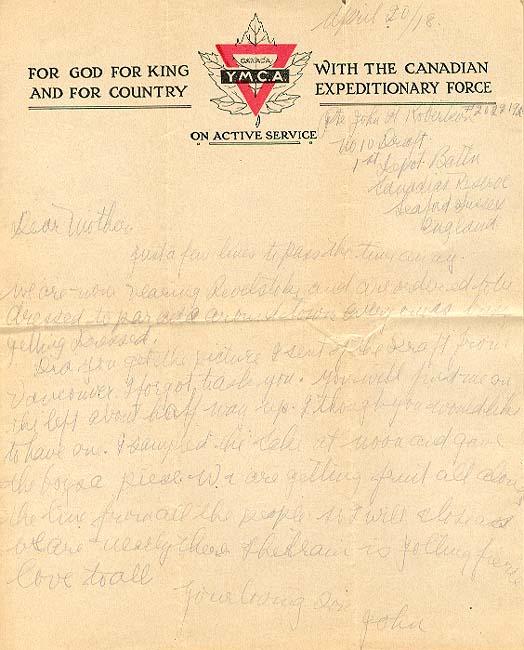 April 20/18.
FOR GOD FOR KING
AND FOR COUNTRY
CANADA
Y.M.C.A.
ON ACTIVE SERVICE
WITH THE CANADIAN
EXPEDITIONARY FORCE
Pte John H Robertson
No 10 Draft
1st Depot Battn
Canadian Reserve
Seaford Sussex
England
Dear Mother
Just a few lines to pass the time away.
We are now nearing Revelstoke and are ordered to be
dressed to parade around town everyone is busy
getting dressed.
Did you get the picture I sent of the draft from
Vancouver I forgot to ask you. You will find me on
the left about half way up. I thought you would like
to have one. I sampled the cake at noon and gave
the boys a piece. We are getting fruit all along
the line from all the people so I will close as
we are nearly there & the train is jolting fierce
love to all
Your loving Son
John